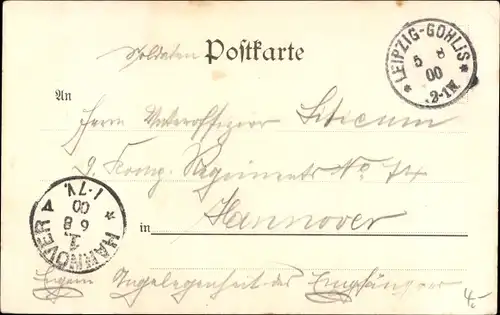 Soldaten Postkarte
LEIPZIG-GOHLIS
5 8
00
12-1N.
An
Herrn Unteroffizier
9. Komp. Regiments No 74
in Hannover
HANNOVER
1.
6 8
00
1-7V.
Eigene Angelegenheit des Empfängers
4.-